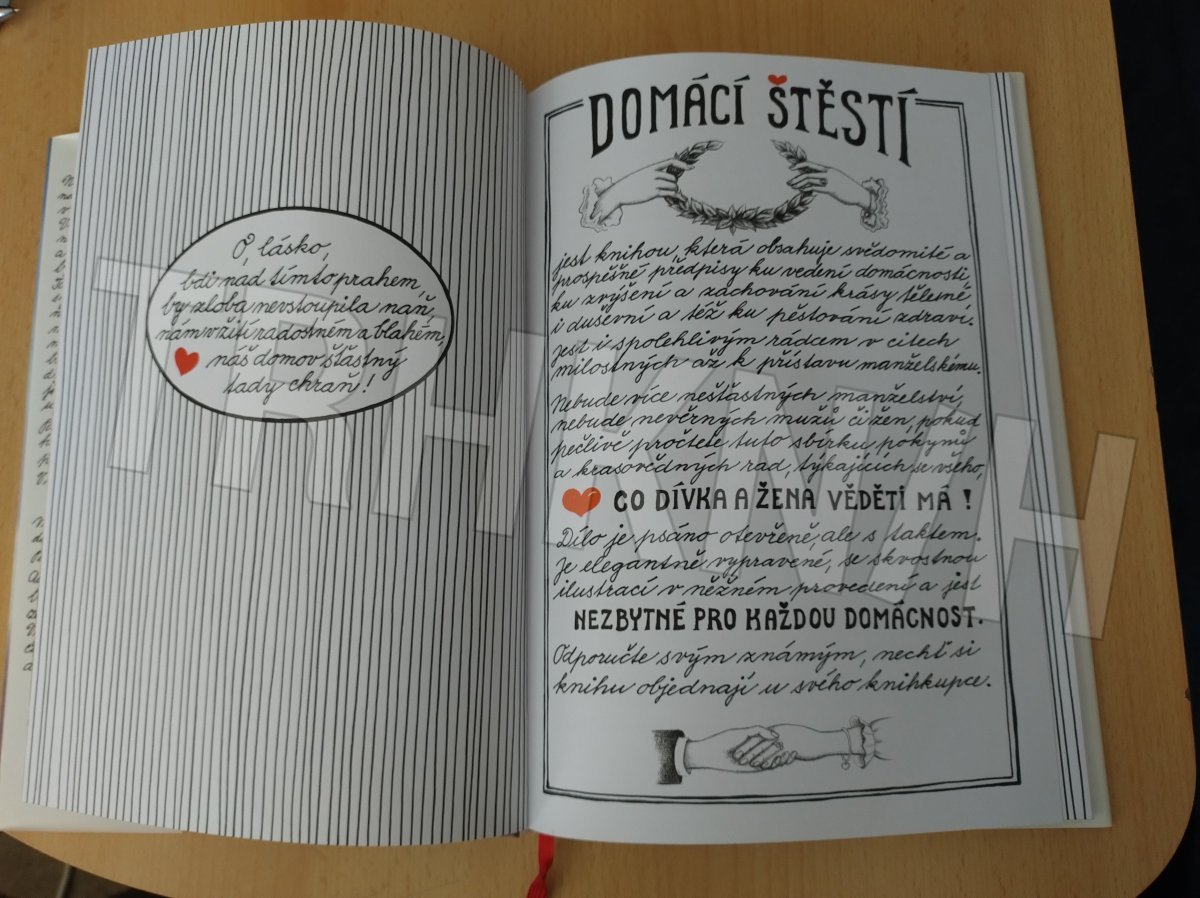 Ó, lásko,
bdi nad tímto prahem,
by zloba nevstoupila naň,
nám v žití radostném a blahém,
náš domov šťastný
tady chraň!
DOMÁCÍ ŠTĚSTÍ
jest knihou, která obsahuje svědomité a
prospěšné předpisy ku vedení domácnosti,
ku zvýšení a zachování krásy tělesné
i duševní a též ku pěstování zdraví.
Jest i spolehlivým rádcem v citech
milostných až k přístavu manželskému.
Nebude více nešťastných manželství,
nebude nevěrných mužů či žen, pokud
pečlivě pročtete tuto sbírku pokynů
a krasovědných rad, týkajících se všeho,
CO DÍVKA A ŽENA VĚDĚTI MÁ!
Dílo je psáno otevřeně, ale s taktem.
Je elegantně vypravené, se skvostnou
ilustrací v něžném provedení a jest
NEZBYTNÉ PRO KAŽDOU DOMÁCNOST.
Odporučte svým známým, nechť si
knihu objednají u svého knihkupce.
TRHKNIH